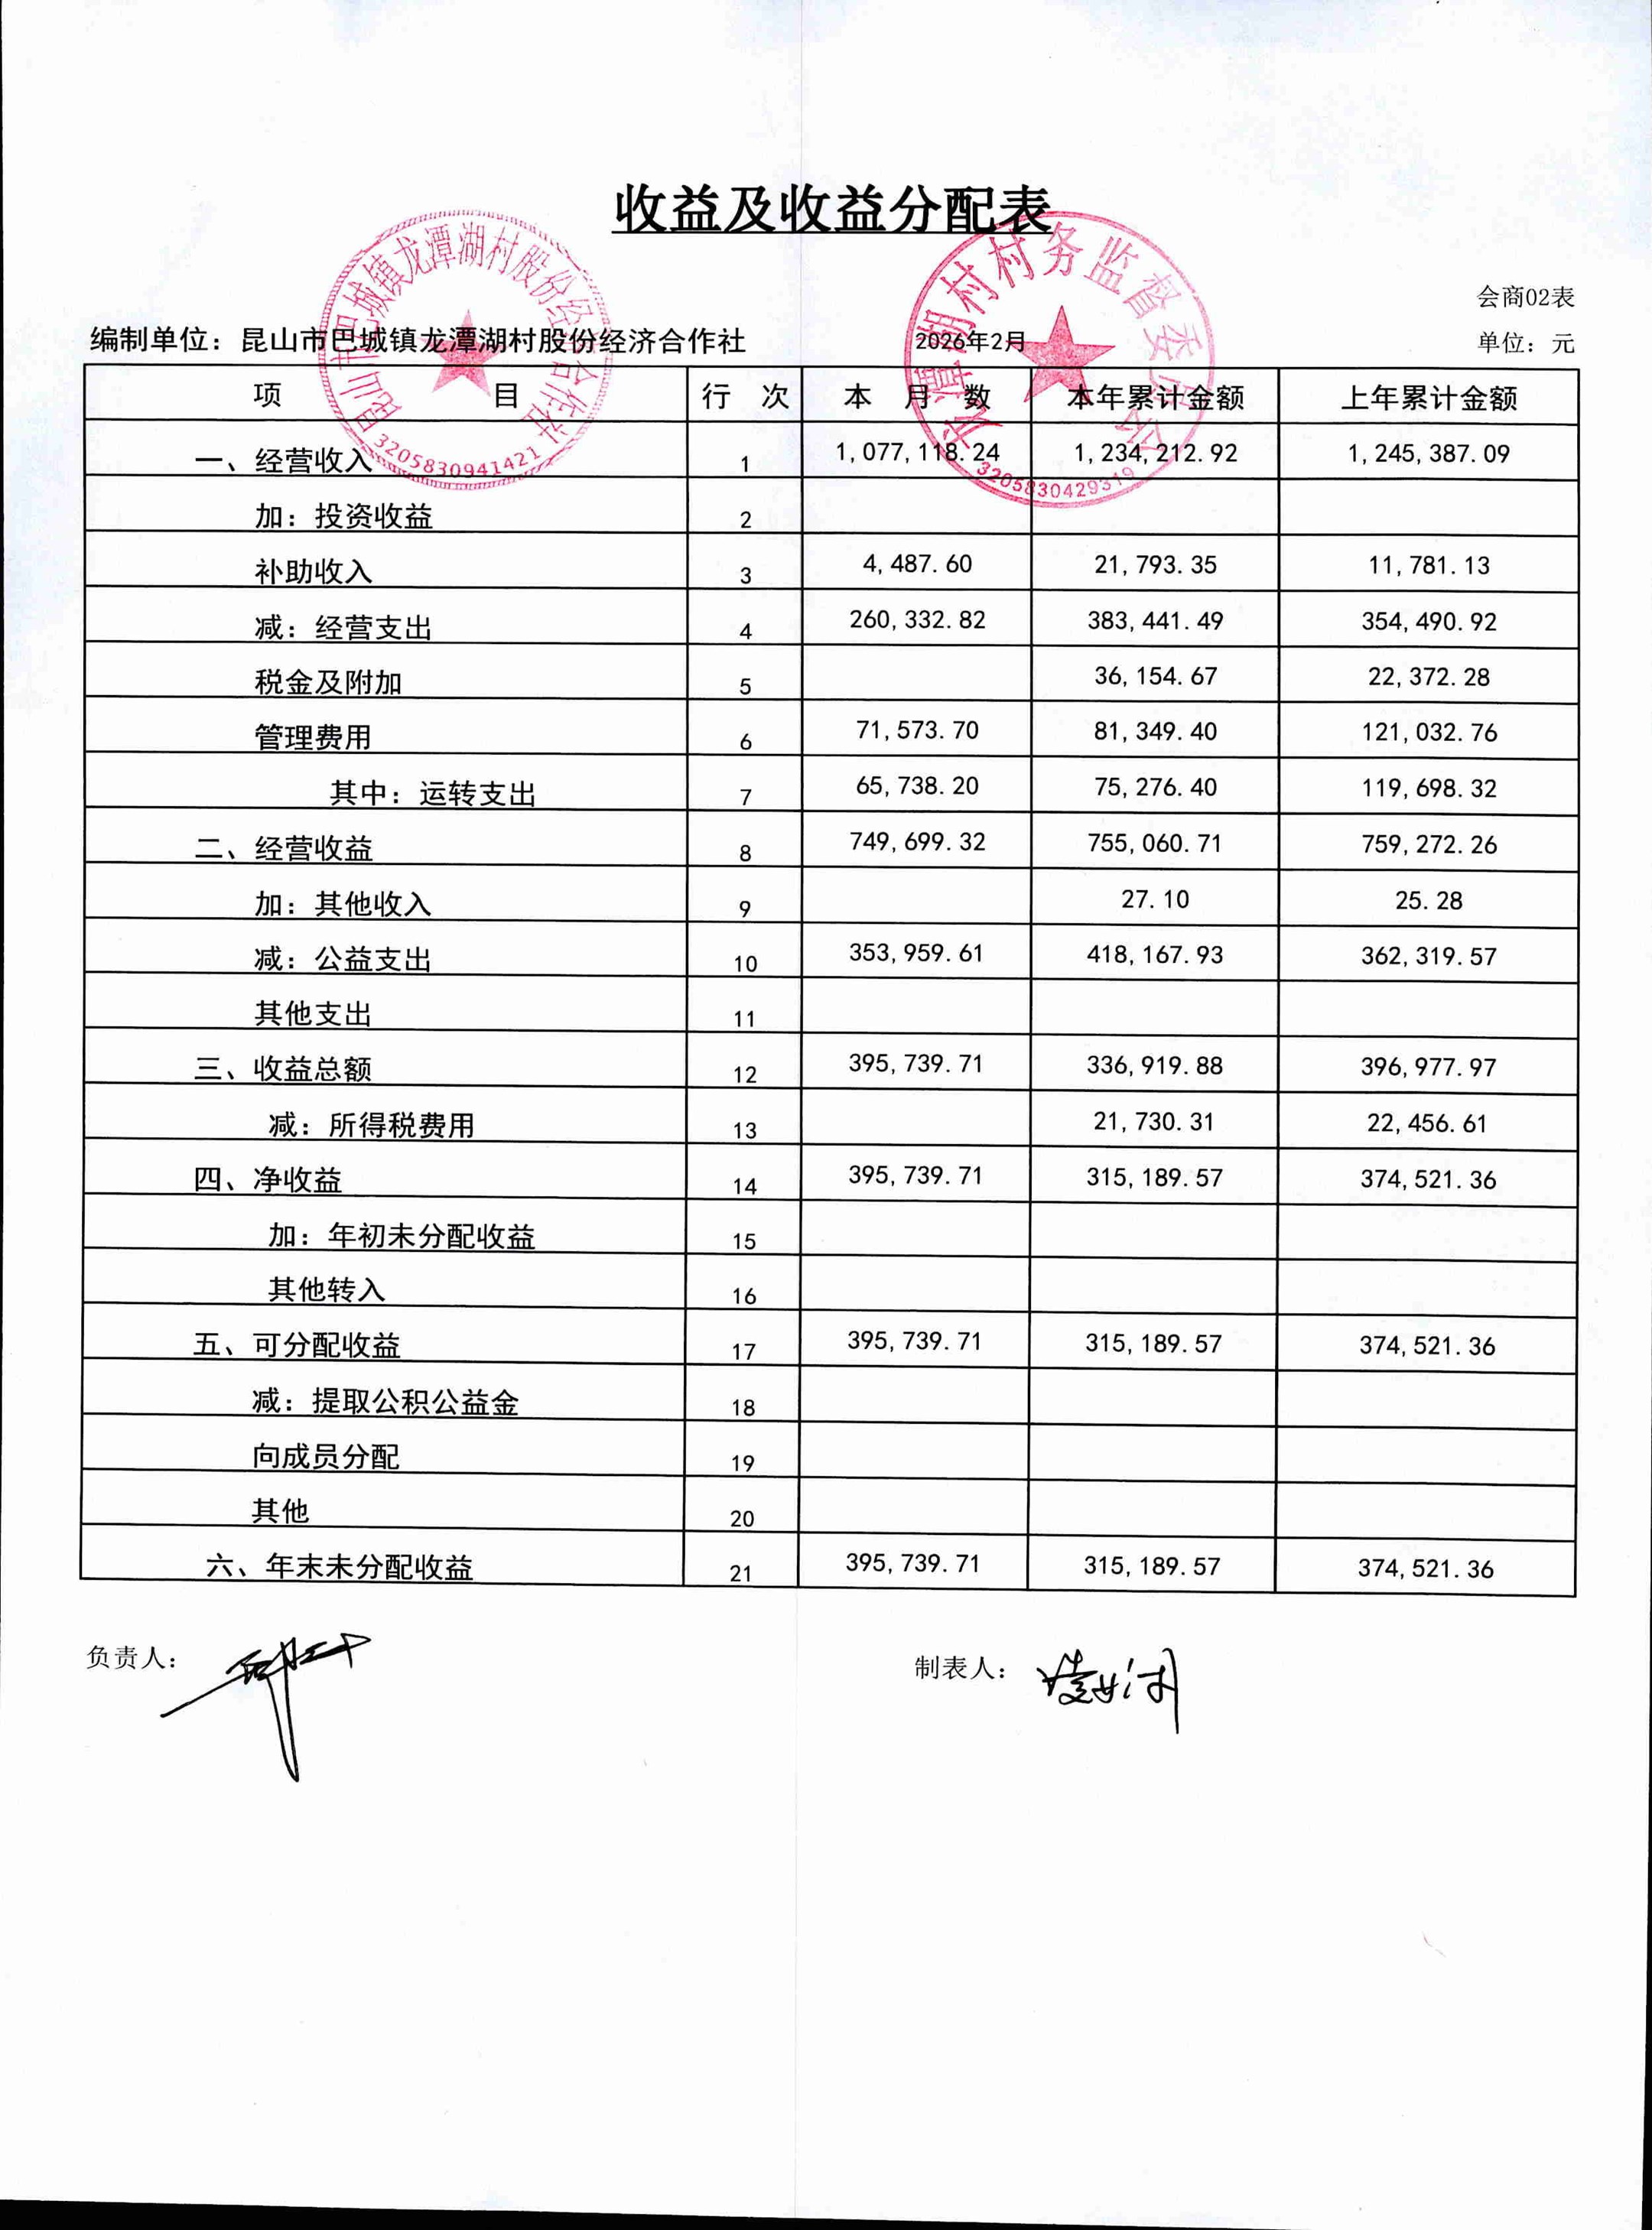 收益及收益分配表
会商02表
编制单位：昆山市巴城镇龙潭湖村股份经济合作社 2026年2月 单位：元
昆山市巴城镇龙潭湖村股份经济合作社
3205830941421
龙潭湖村村务监督委员会
3205830429319
项 目 行 次 本 月 数 本年累计金额 上年累计金额
一、经营收入 1 1,077,118.24 1,234,212.92 1,245,387.09
加：投资收益 2
补助收入 3 4,487.60 21,793.35 11,781.13
减：经营支出 4 260,332.82 383,441.49 354,490.92
税金及附加 5 36,154.67 22,372.28
管理费用 6 71,573.70 81,349.40 121,032.76
其中：运转支出 7 65,738.20 75,276.40 119,698.32
二、经营收益 8 749,699.32 755,060.71 759,272.26
加：其他收入 9 27.10 25.28
减：公益支出 10 353,959.61 418,167.93 362,319.57
其他支出 11
三、收益总额 12 395,739.71 336,919.88 396,977.97
减：所得税费用 13 21,730.31 22,456.61
四、净收益 14 395,739.71 315,189.57 374,521.36
加：年初未分配收益 15
其他转入 16
五、可分配收益 17 395,739.71 315,189.57 374,521.36
减：提取公积公益金 18
向成员分配 19
其他 20
六、年末未分配收益 21 395,739.71 315,189.57 374,521.36
负责人： 制表人：